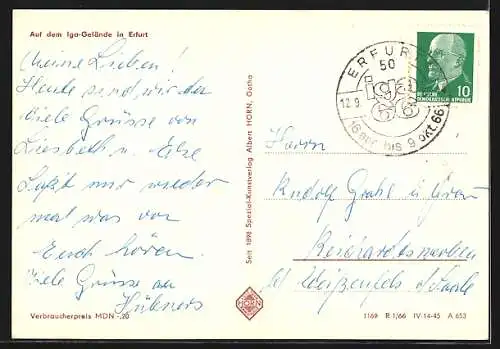 Auf dem Iga-Gelände in Erfurt
Meine Lieben!
Heute sind wir da
Viele Grüsse von
Liesbeth u. Else
Laßt mir wieder
mal was von
Euch hören.
Viele Grüsse an
Hübners
Verbraucherpreis MDN -,20
Seit 1898 Spezial-Kunstverlag Albert HORN, Gotha
HORN
ERFURT
50
12.9.
iga
66
bis 9. okt. 66
DEUTSCHE
DEMOKRATISCHE REPUBLIK
10
Herrn
Rudolf u. Frau
Reichardtswerben
b/ Weißenfels a/ Saale
1169 R 1/66 IV-14-45 A 653